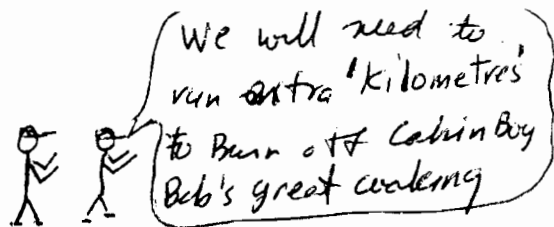 We will need to
run extra 'Kilometres'
to Burn off Cabin Boy
Bob's great cooking